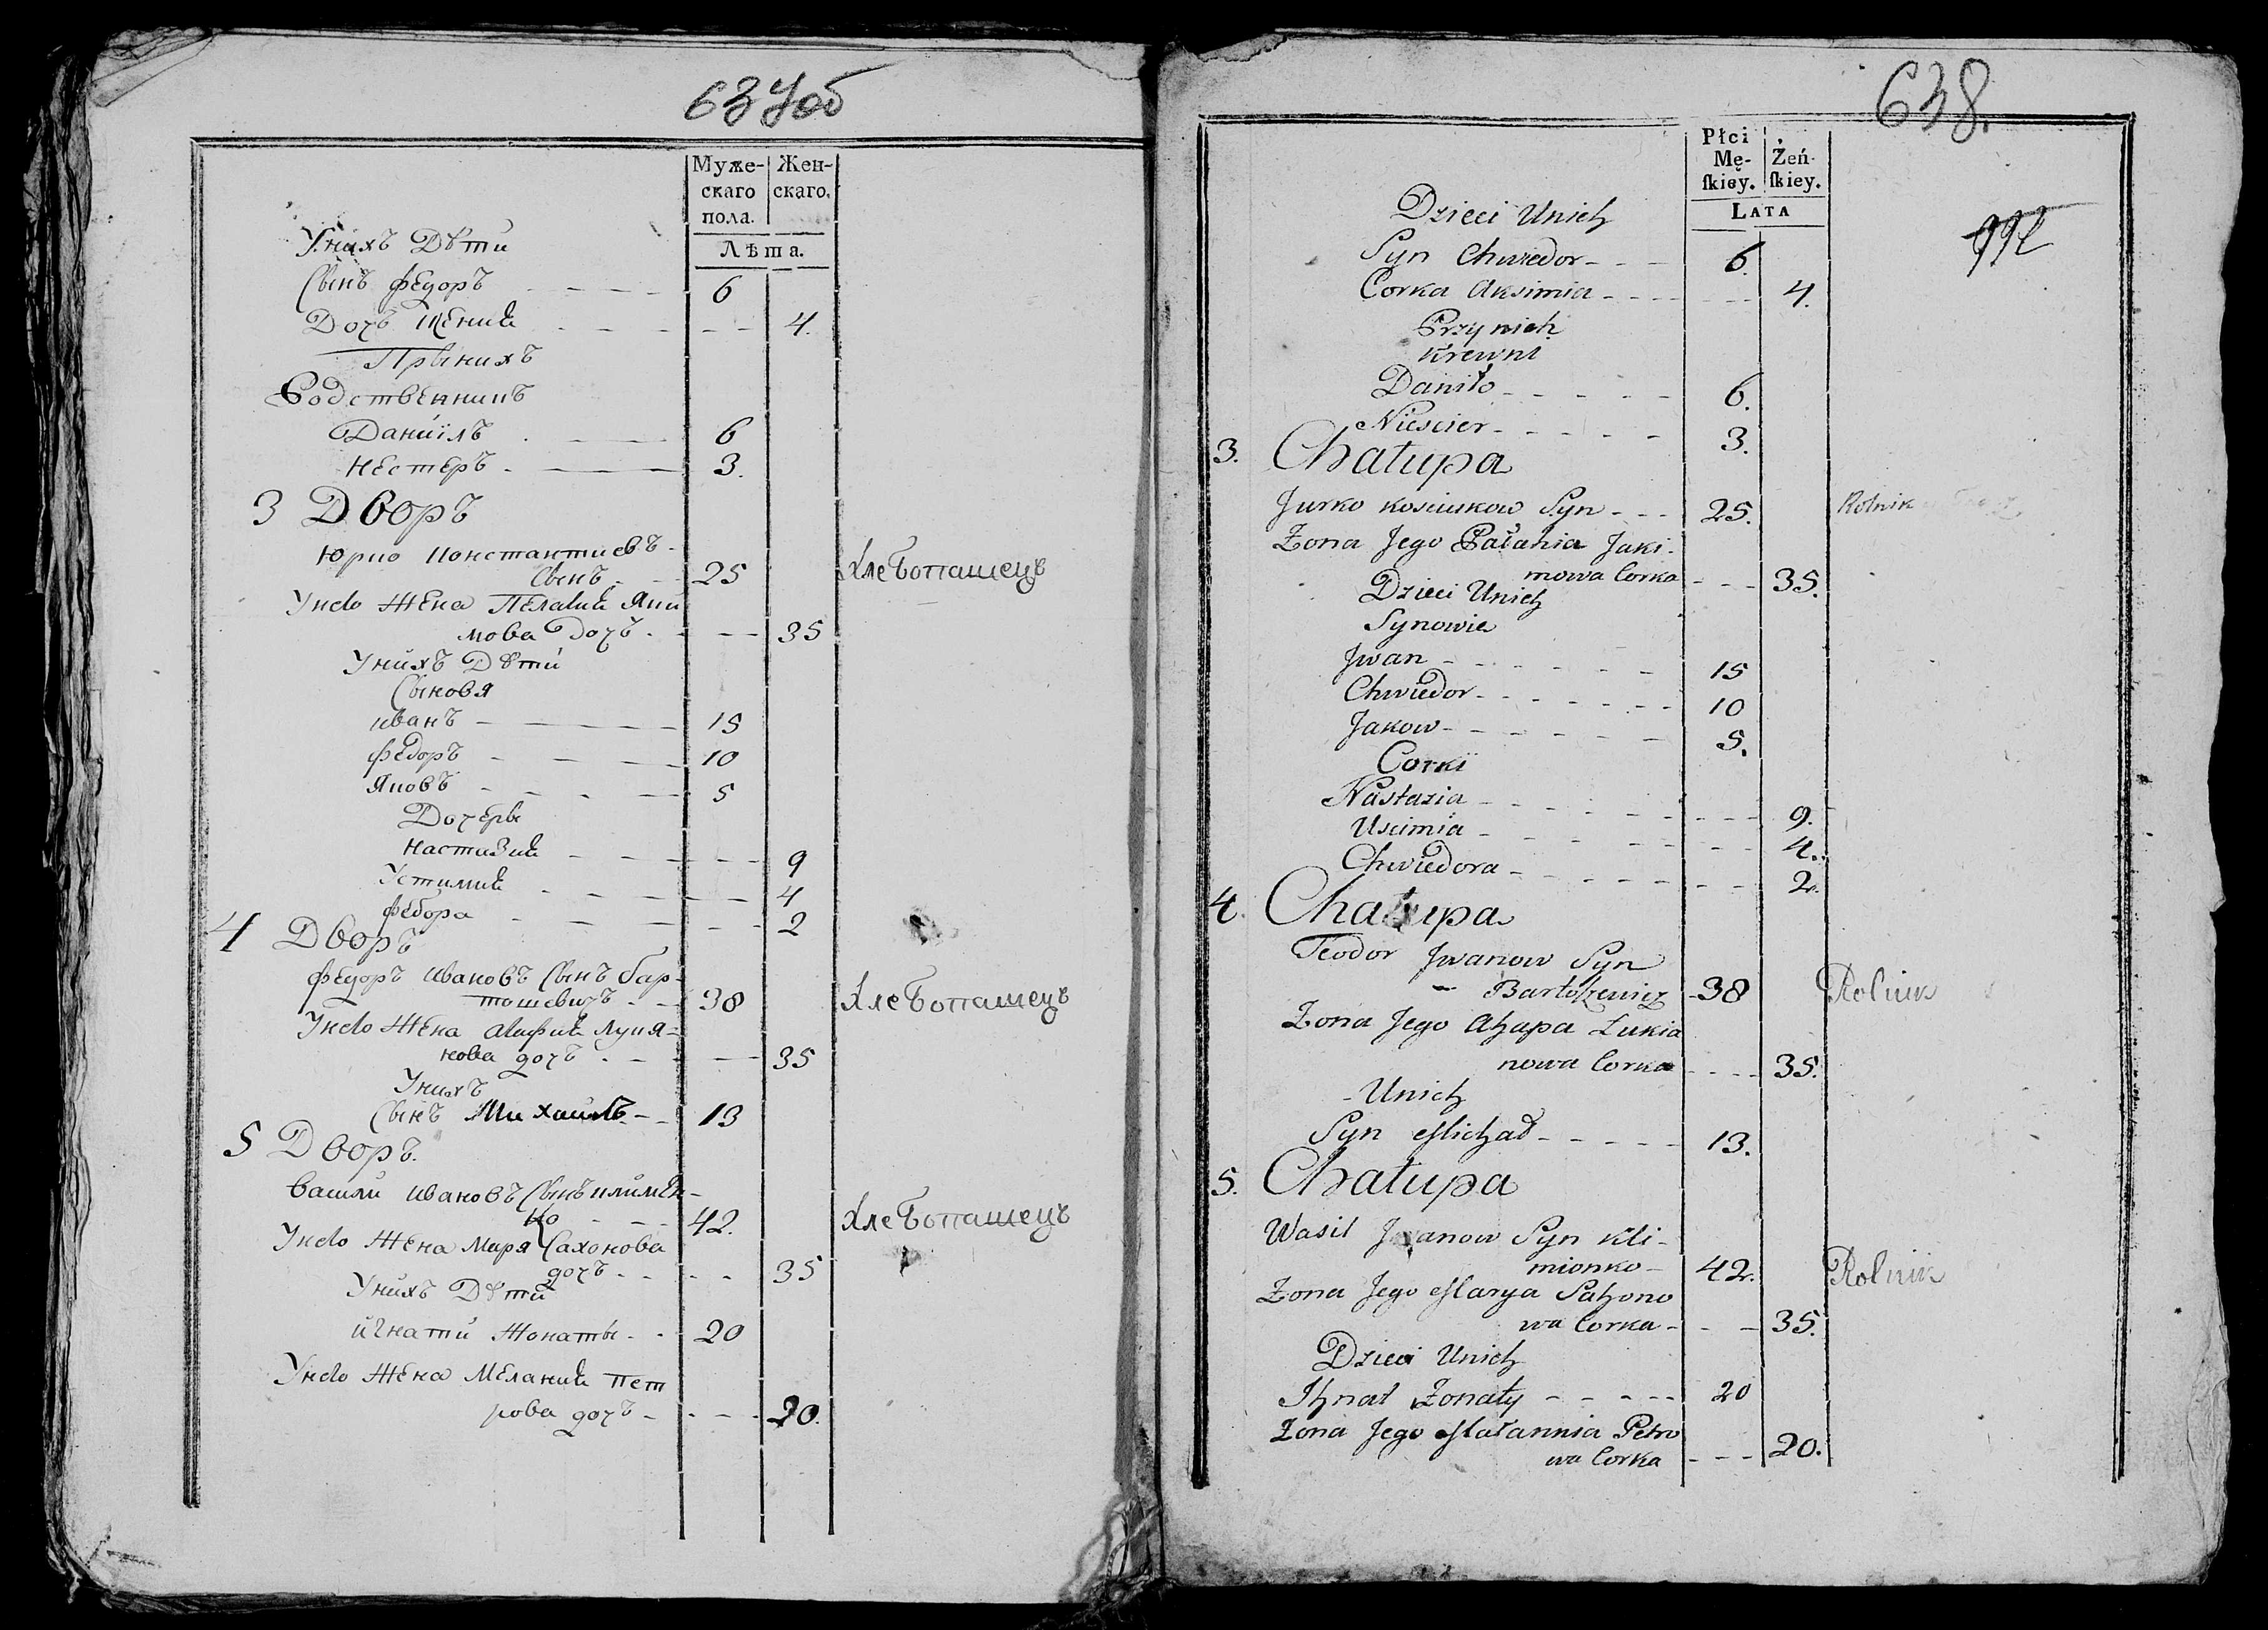 637об
Муже-
скаго
пола.
Жен-
скаго.
Лѣта.
Унихъ Дѣти
Сынъ Федоръ 6
Дочъ 4.
Прынихъ
Родственникъ
Даниїлъ 6
Нестеръ 3.
3 Дворъ
Юрко Константиевъ
Сынъ 25 Хлебопашецъ
Унево Жена Пелагия Яки
мова Дочъ 35
Унихъ Дѣти
Сыновя
иванъ 15
федоръ 10
Яковъ 5
Дочеры
Настазия 9
Устимия 4
федора 2
4 Дворъ
федоръ ивановъ Сынъ бар-
тошевичъ 38 Хлебопашецъ
Унево Жена Агафия Лукя-
нова дочъ 35
Унихъ
Сынъ Михайлъ 13
5 Дворъ.
Васили ивановъ Сынъ климен-
ко 42. Хлебопашецъ
Унево Жена Маря Сахонова
дочъ 35
Унихъ Дѣти
игнати Жонаты 20
Унево Жена Мелания Пет
рова дочъ 20.
638.
Płci
Mę-
ſkiey.
Żeń-
ſkiey.
LATA
Dzieci Unich
Syn Chwiedor 6.
Corka Aksimia 4.
Przy nich
krewni
Daniło 6.
Niescier 3.
3. Chałupa
Jurko Kosciukow Syn 25. Rolnik
Zona Jego Pałahia Jaki-
mowa Corka 35.
Dzieci Unich
Synowie
Jwan 15
Chwiedor 10
Jakow 5.
Corki
Nastazia 9.
Uscimia 4.
Chwiedora 2.
4. Chałupa
Teodor Jwanow Syn
Bartoszewicz 38 Rolnik
Zona Jego Ahapa Łukia
nowa Corka 35.
Unich
Syn Michał 13.
5. Chałupa
Wasil Jwanow Syn Kli-
mionko 42. Rolnik
Zona Jego Marya Sahono
wa Corka 35.
Dzieci Unich
Ihnat Zonaty 20
Zona Jego Małannia Petro
wa Corka 20.